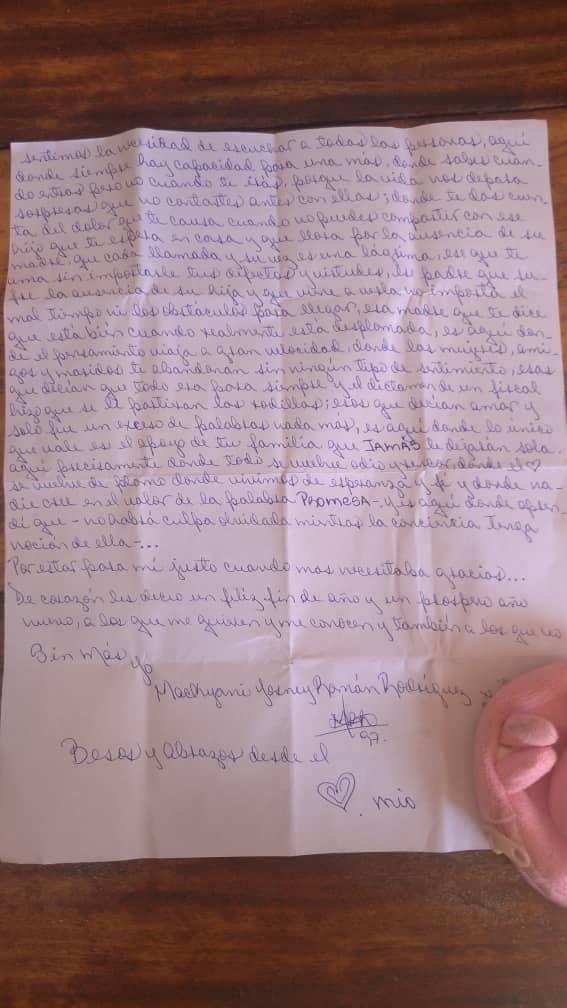 sentimos la necesidad de escuchar a todas las personas, aquí
donde siempre hay capacidad para una más, donde sabes cuan-
do entras pero no cuando te irás, porque la vida nos depara
sorpresas que no contastes antes con ellas; donde te das cuen-
ta del dolor que te causa cuando no puedes compartir con ese
hijo que te espera en casa y que llora por la ausencia de su
madre, que cada llamada y su voz es una lágrima, ese que te
ama sin importarle tus defectos y virtudes, es padre que su-
fre la ausencia de su hija y que viene a verla no importa el
mal tiempo ni los obstáculos para llegar, esa madre que te dice
que está bien cuando realmente está desplomada, es aquí don-
de el pensamiento viaja a gran velocidad, donde las mujeres, ami-
gos y maridos te abandonan sin ningún tipo de sentimiento, esas
que decían que todo era para siempre y el dictamen de un fiscal
hizo que se le partieran las rodillas; esos que decían amar y
solo fue un exceso de palabras nada más, es aquí donde lo único
que vale es el apoyo de tu familia que JAMÁS te dejarán sola.
aquí precisamente donde todo se vuelve odio y rencor, donde el ♡
se vuelve de plomo donde vivimos de esperanza y fé y donde na-
die cree en el valor de la palabra PROMESA-, y es aquí donde apren-
dí que - no habrá culpa olvidada mientras la conciencia tenga
noción de ella-...
Por estar para mi justo cuando mas necesitaba gracias...
De corazón les deseo un feliz fin de año y un próspero año
nuevo, a los que me quieren y me conocen y también a los que no
Sin más yo
Maekyani Yosney Román Rodríguez
97.
Besos y abrazos desde el
♡. mio